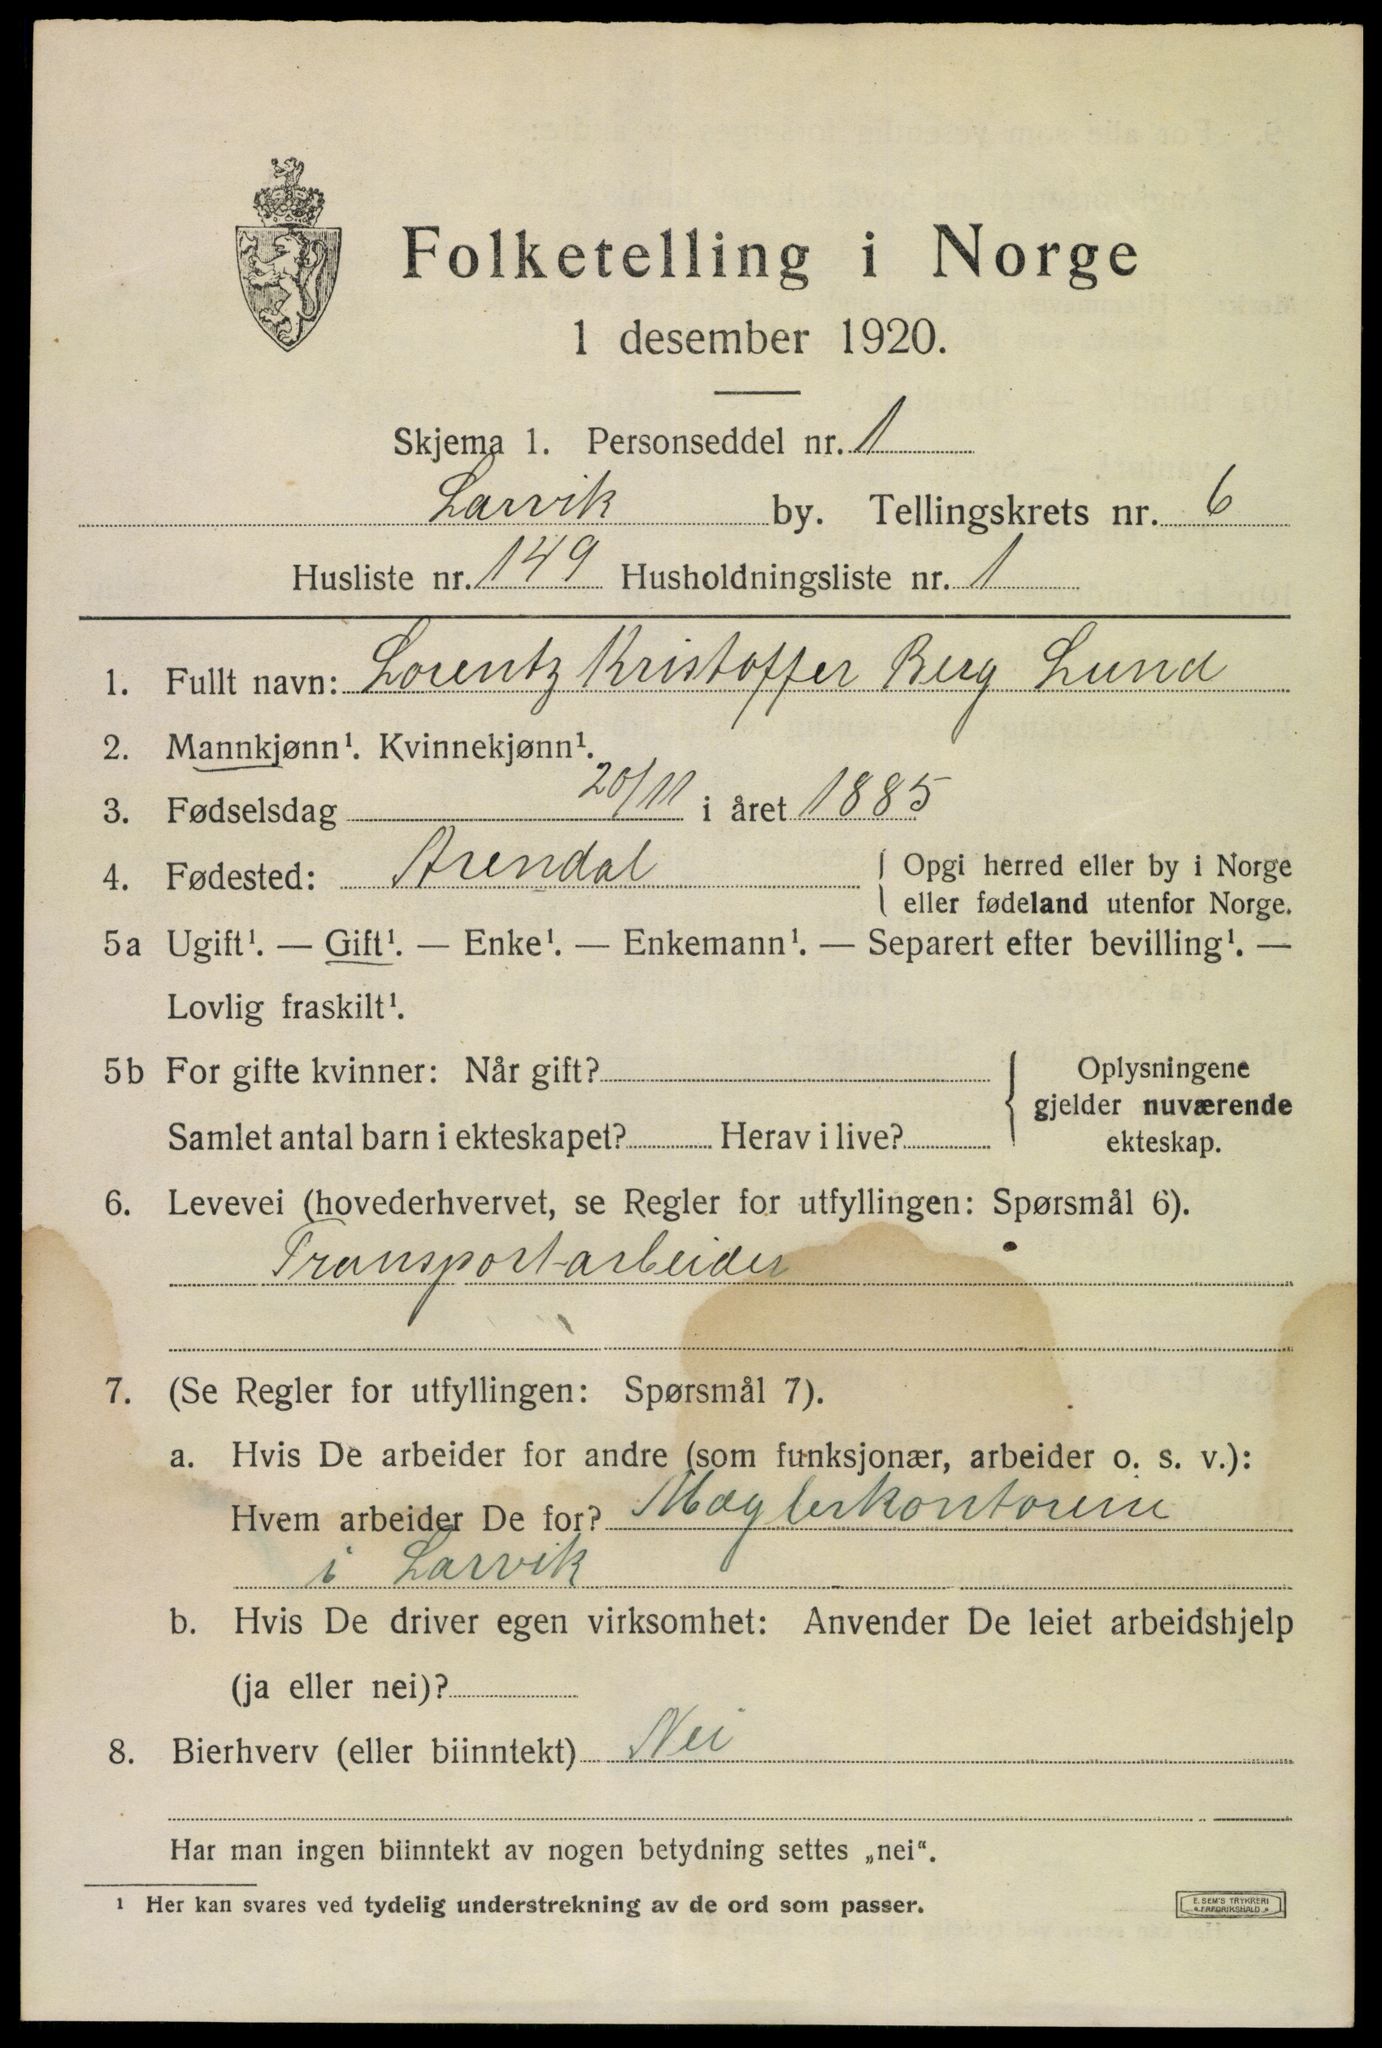 Folketelling i Norge
1 desember 1920.
Skjema 1. Personseddel nr. 1
Larvik by. Tellingskrets nr. 6
Husliste nr. 149 Husholdningsliste nr. 1
1. Fullt navn: Lorentz Kristoffer Berg Lund
2. Mannkjønn¹. Kvinnekjønn¹.
3. Fødselsdag 20/11 i året 1885
4. Fødested: Arendal { Opgi herred eller by i Norge
eller fødeland utenfor Norge.
5a Ugift¹. — Gift¹. — Enke¹. — Enkemann¹. — Separert efter bevilling¹. —
Lovlig fraskilt¹.
5b For gifte kvinner: Når gift? { Oplysningene
gjelder nuværende
Samlet antal barn i ekteskapet? Herav i live? ekteskap.
6. Levevei (hovederhvervet, se Regler for utfyllingen: Spørsmål 6).
Transportarbeider
7. (Se Regler for utfyllingen: Spørsmål 7).
a. Hvis De arbeider for andre (som funksjonær, arbeider o. s. v.):
Hvem arbeider De for? Mæglerkontorene
i Larvik
b. Hvis De driver egen virksomhet: Anvender De leiet arbeidshjelp
(ja eller nei)?
8. Bierhverv (eller biinntekt) Nei
Har man ingen biinntekt av nogen betydning settes „nei“.
¹ Her kan svares ved tydelig understrekning av de ord som passer.
E. SEM'S TRYKKERI
FREDRIKSHALD